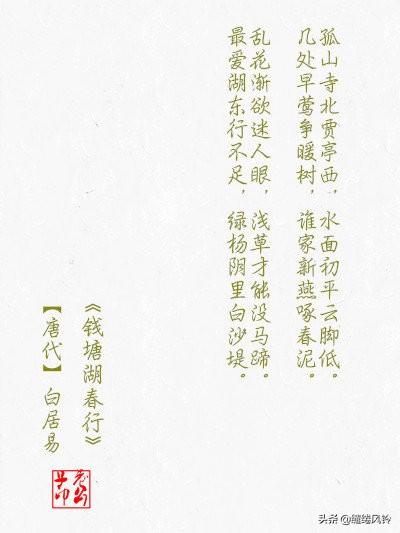 孤山寺北贾亭西，水面初平云脚低。
几处早莺争暖树，谁家新燕啄春泥。
乱花渐欲迷人眼，浅草才能没马蹄。
最爱湖东行不足，绿杨阴里白沙堤。
《钱塘湖春行》
【唐代】白居易
头条 @缱绻风铃